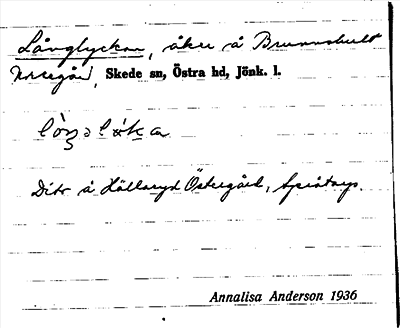 Långlyckan, åker å Brunnshult
Norregård, Skede sn, Östra hd, Jönk. l.
Dito å Hällaryd Östergård,
Annalisa Anderson 1936